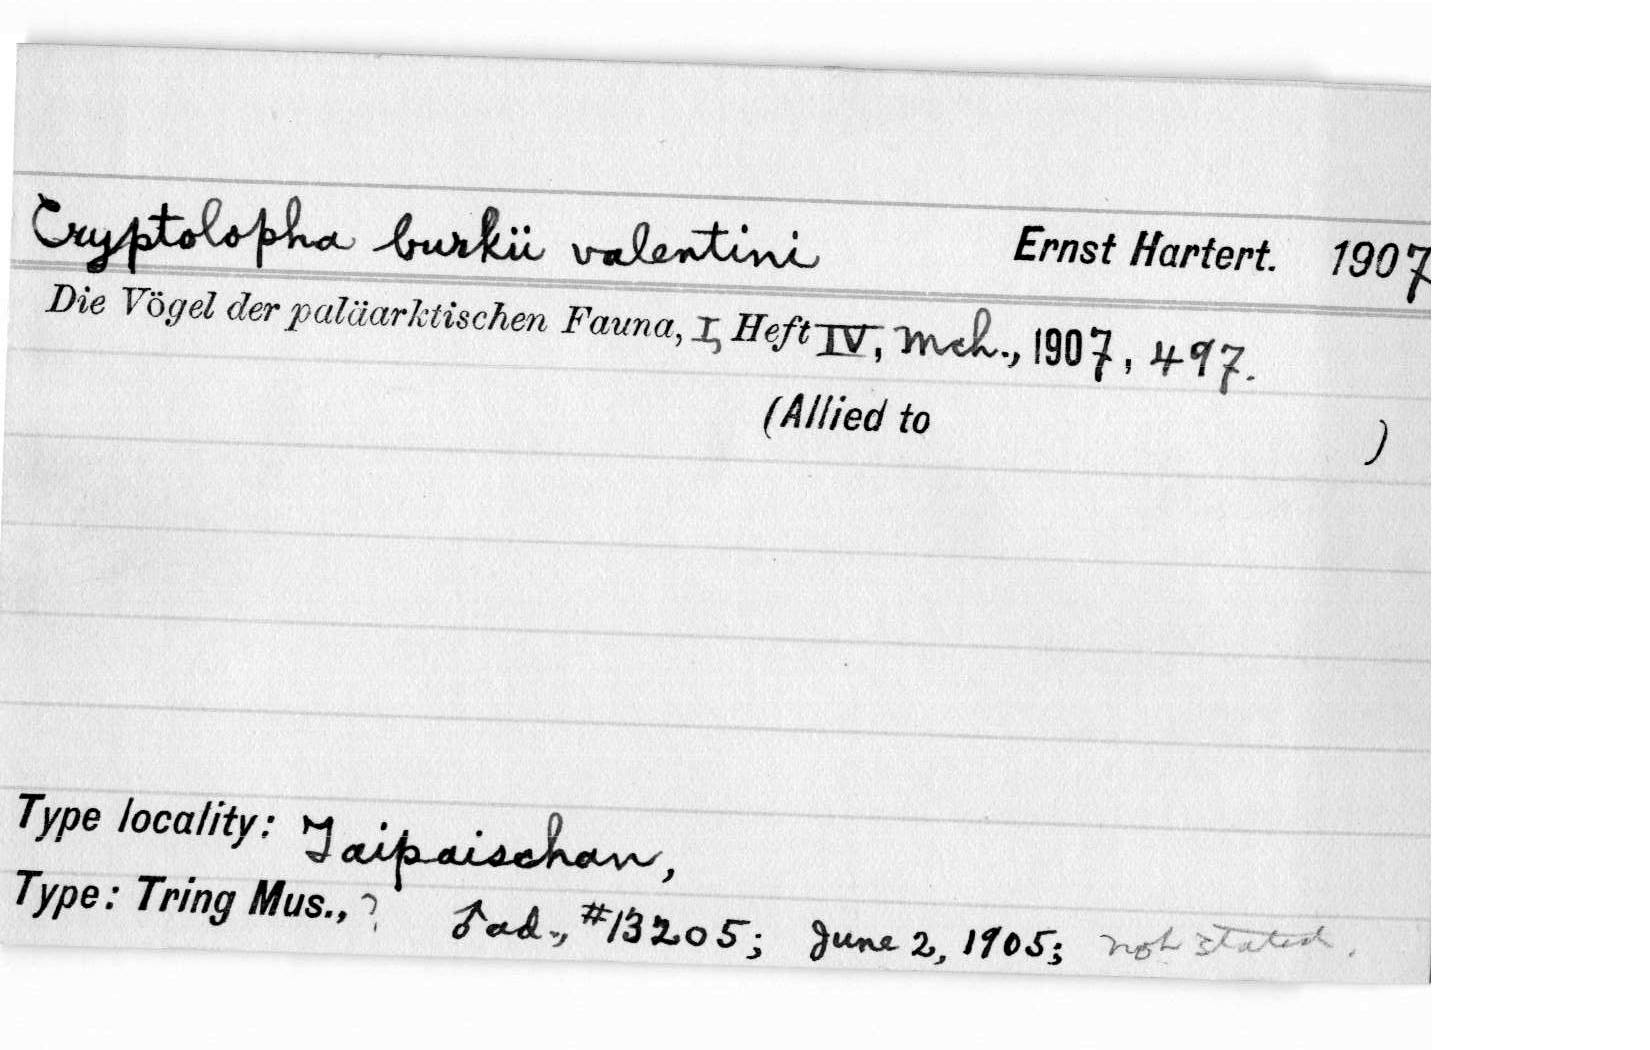 Cryptolopha burkii valentini Ernst Hartert. 1907
Die Vögel der paläarktischen Fauna, I, Heft IV, Mch., 1907, 497.
(Allied to )
Type locality: Taipaischan,
Type: Tring Mus., ? ♂ ad., #13205; June 2, 1905; not stated.